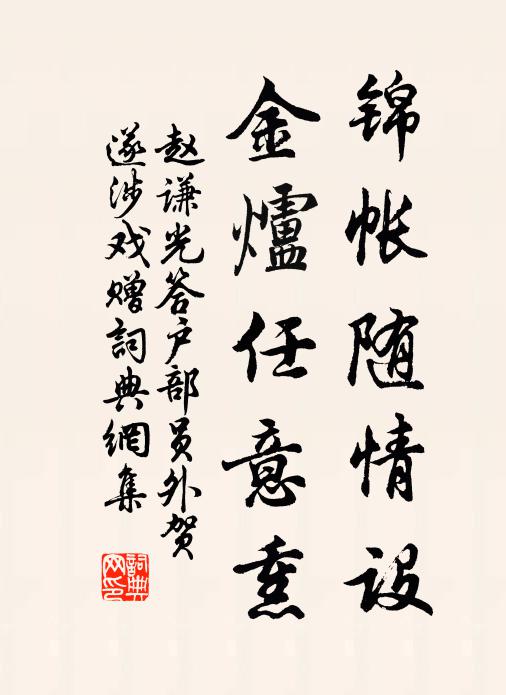 锦帐随情设
金爐任意熏
赵谦光答户部员外贺
遂涉戏赠詞典網集
詞典
网印